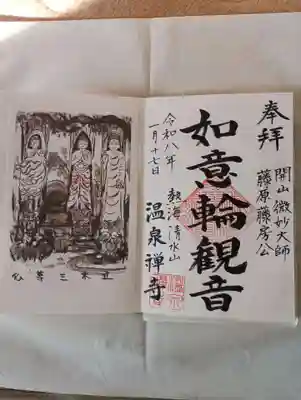 奉拝
開山 微妙大師
藤原藤房公
如意輪観音
令和八年
一月十七日
熱海 清水山
温泉禅寺